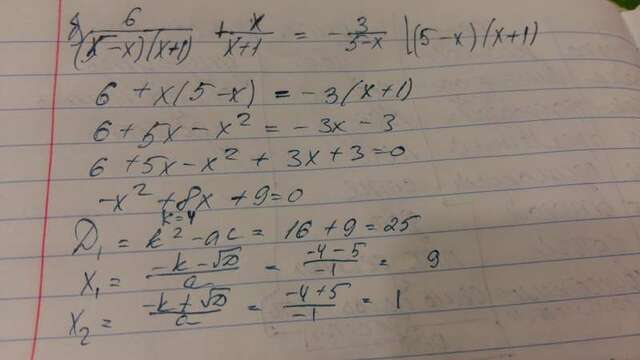 8) 6/((5-x)(x+1)) + x/(x+1) = -3/(5-x) |(5-x)(x+1)
6 + x(5-x) = -3(x+1)
6+5x-x² = -3x-3
6+5x-x²+3x+3=0
-x²+8x+9=0
k=4
D₁ = k²-ac = 16+9=25
x₁ = (-k-√D)/a = (-4-5)/-1 = 9
x₂ = (-k+√D)/a = (-4+5)/-1 = 1